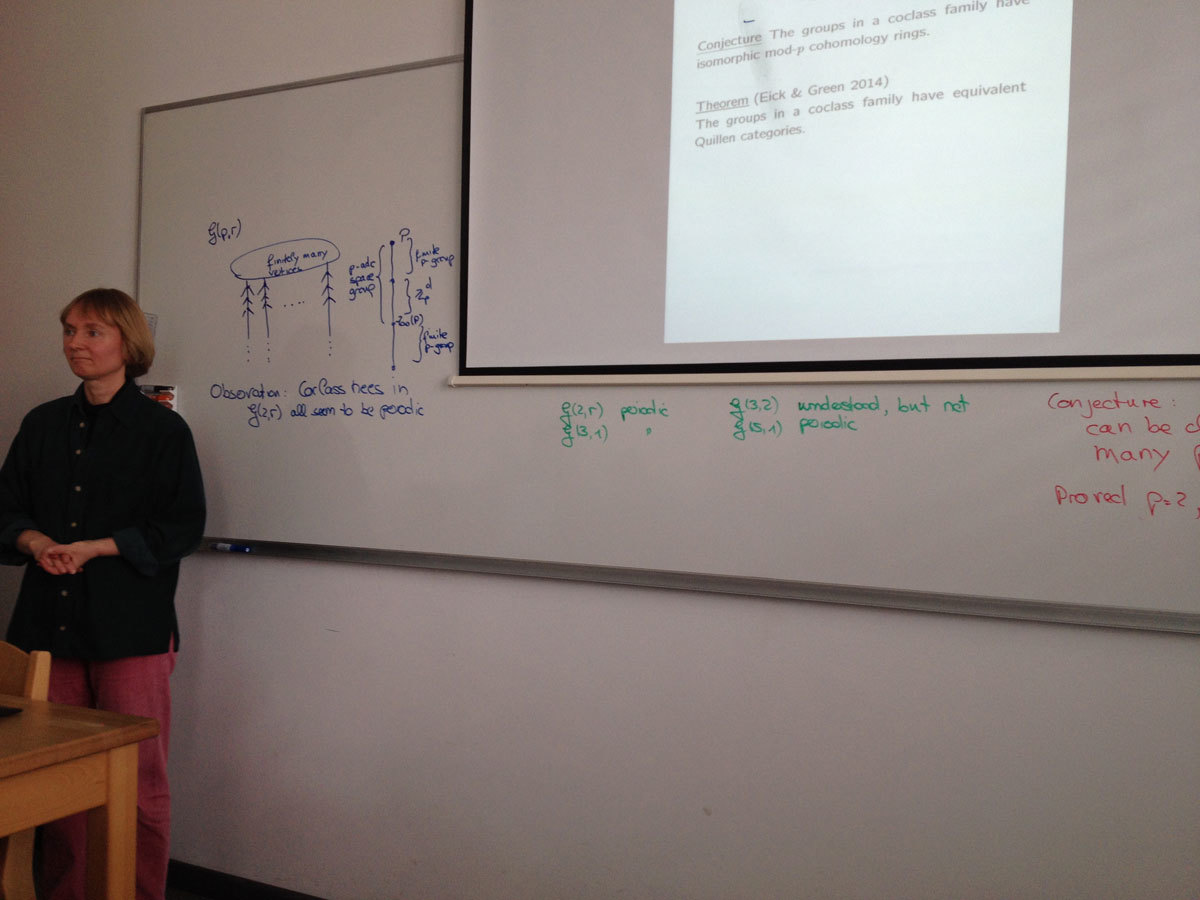 Conjecture The groups in a coclass family have
isomorphic mod-p cohomology rings.
Theorem (Eick & Green 2014)
The groups in a coclass family have equivalent
Quillen categories.
G(p,r)
finitely many
vertices
p-adic
space
group
P
finite
p-group
ℤ_p^d
(P)
finite
p-group
Observation: Coclass trees in
G(2,r) all seem to be periodic
G(2,r) periodic
G(3,1) "
G(3,2) understood, but not
G(5,1) periodic
Conjecture:
can be
many
Proved p=2,